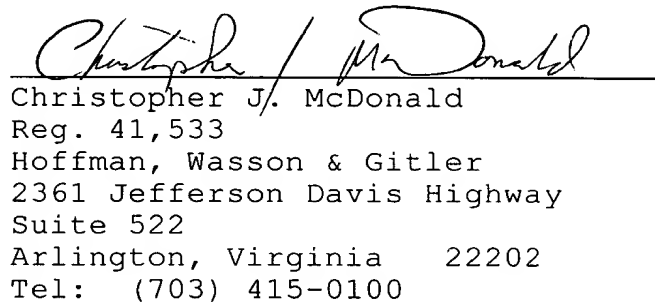 Christopher J McDonald
Christopher J. McDonald
Reg. 41,533
Hoffman, Wasson & Gitler
2361 Jefferson Davis Highway
Suite 522
Arlington, Virginia 22202
Tel: (703) 415-0100